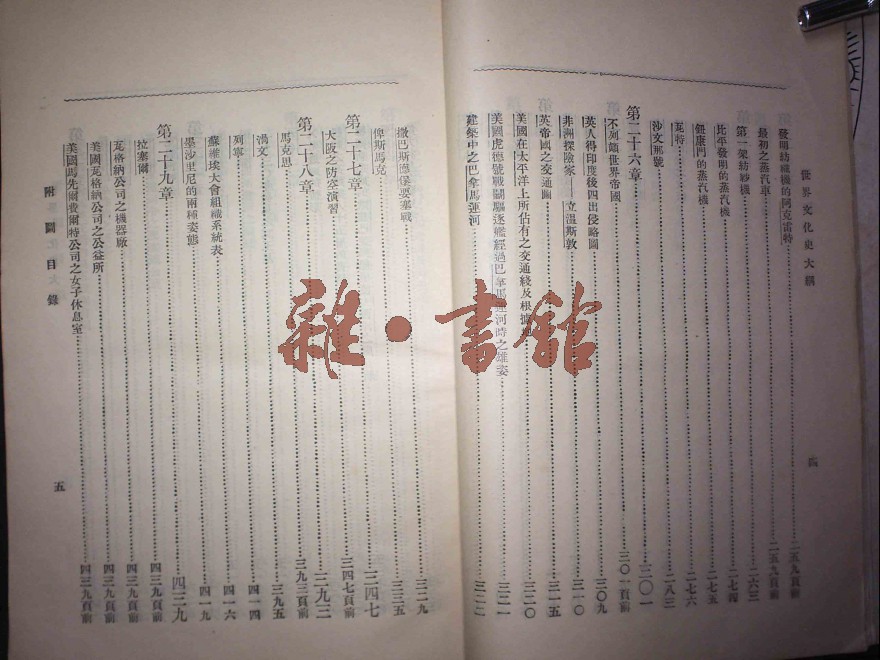 世界文化史大綱
四
發明紡織機的阿克雷特……二五九頁前
最初之蒸汽車……二五九頁前
第一架紡紗機……二六三
比平發明的蒸汽機……二七四
鈕康門的蒸汽機……二七五
瓦特……二七六
沙文那號……二八三
第二十六章……三〇一
不列顛世界帝國……三〇一頁前
英人得印度後四出侵略圖……三〇九
非洲探險家——立溫斯敦……三一〇
英帝國之交通圖……三一五
美國在太平洋上所佔有之交通綫及根據地……三二〇
美國虎德號戰鬭驅逐艦經過巴拿馬運河時之雄姿……三二一
建築中之巴拿馬運河……三二二
撒巴斯德堡要塞戰……三二九
俾斯馬克……三三五
第二十七章……三四七
大阪之防空演習……三四七頁前
第二十八章……三九三
馬克思……三九三頁前
湯文……三九五
列寧……四一四
蘇維埃大會組織系統表……四一六
墨沙里尼的兩種姿態……四一九
第二十九章……四三九
拉塞爾……四三九頁前
瓦格納公司之機器廠……四三九頁前
美國瓦格納公司之公益所……四三九頁前
美國馬先爾費爾特公司之女子休息室……四三九頁前
附圖目錄
五
雜·書館